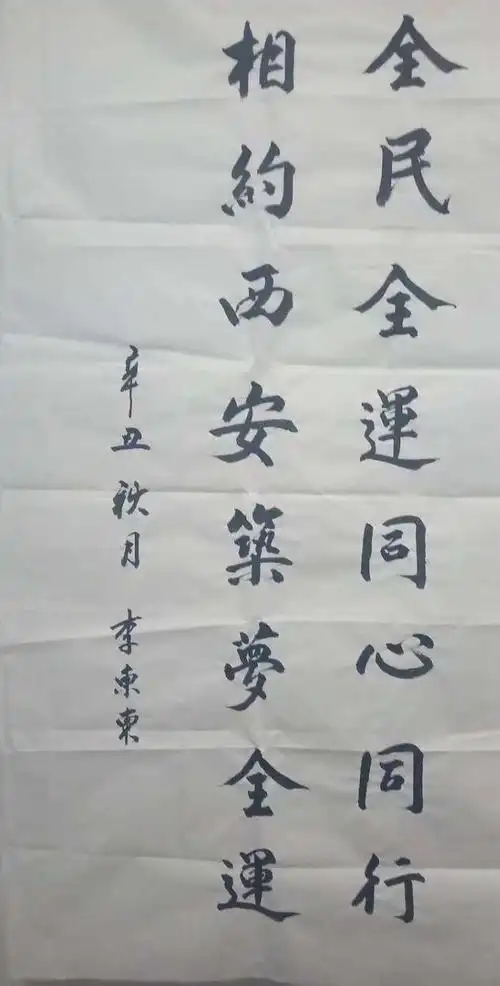 全民全運同心同行
相約西安築夢全運
辛丑秋月 李東東